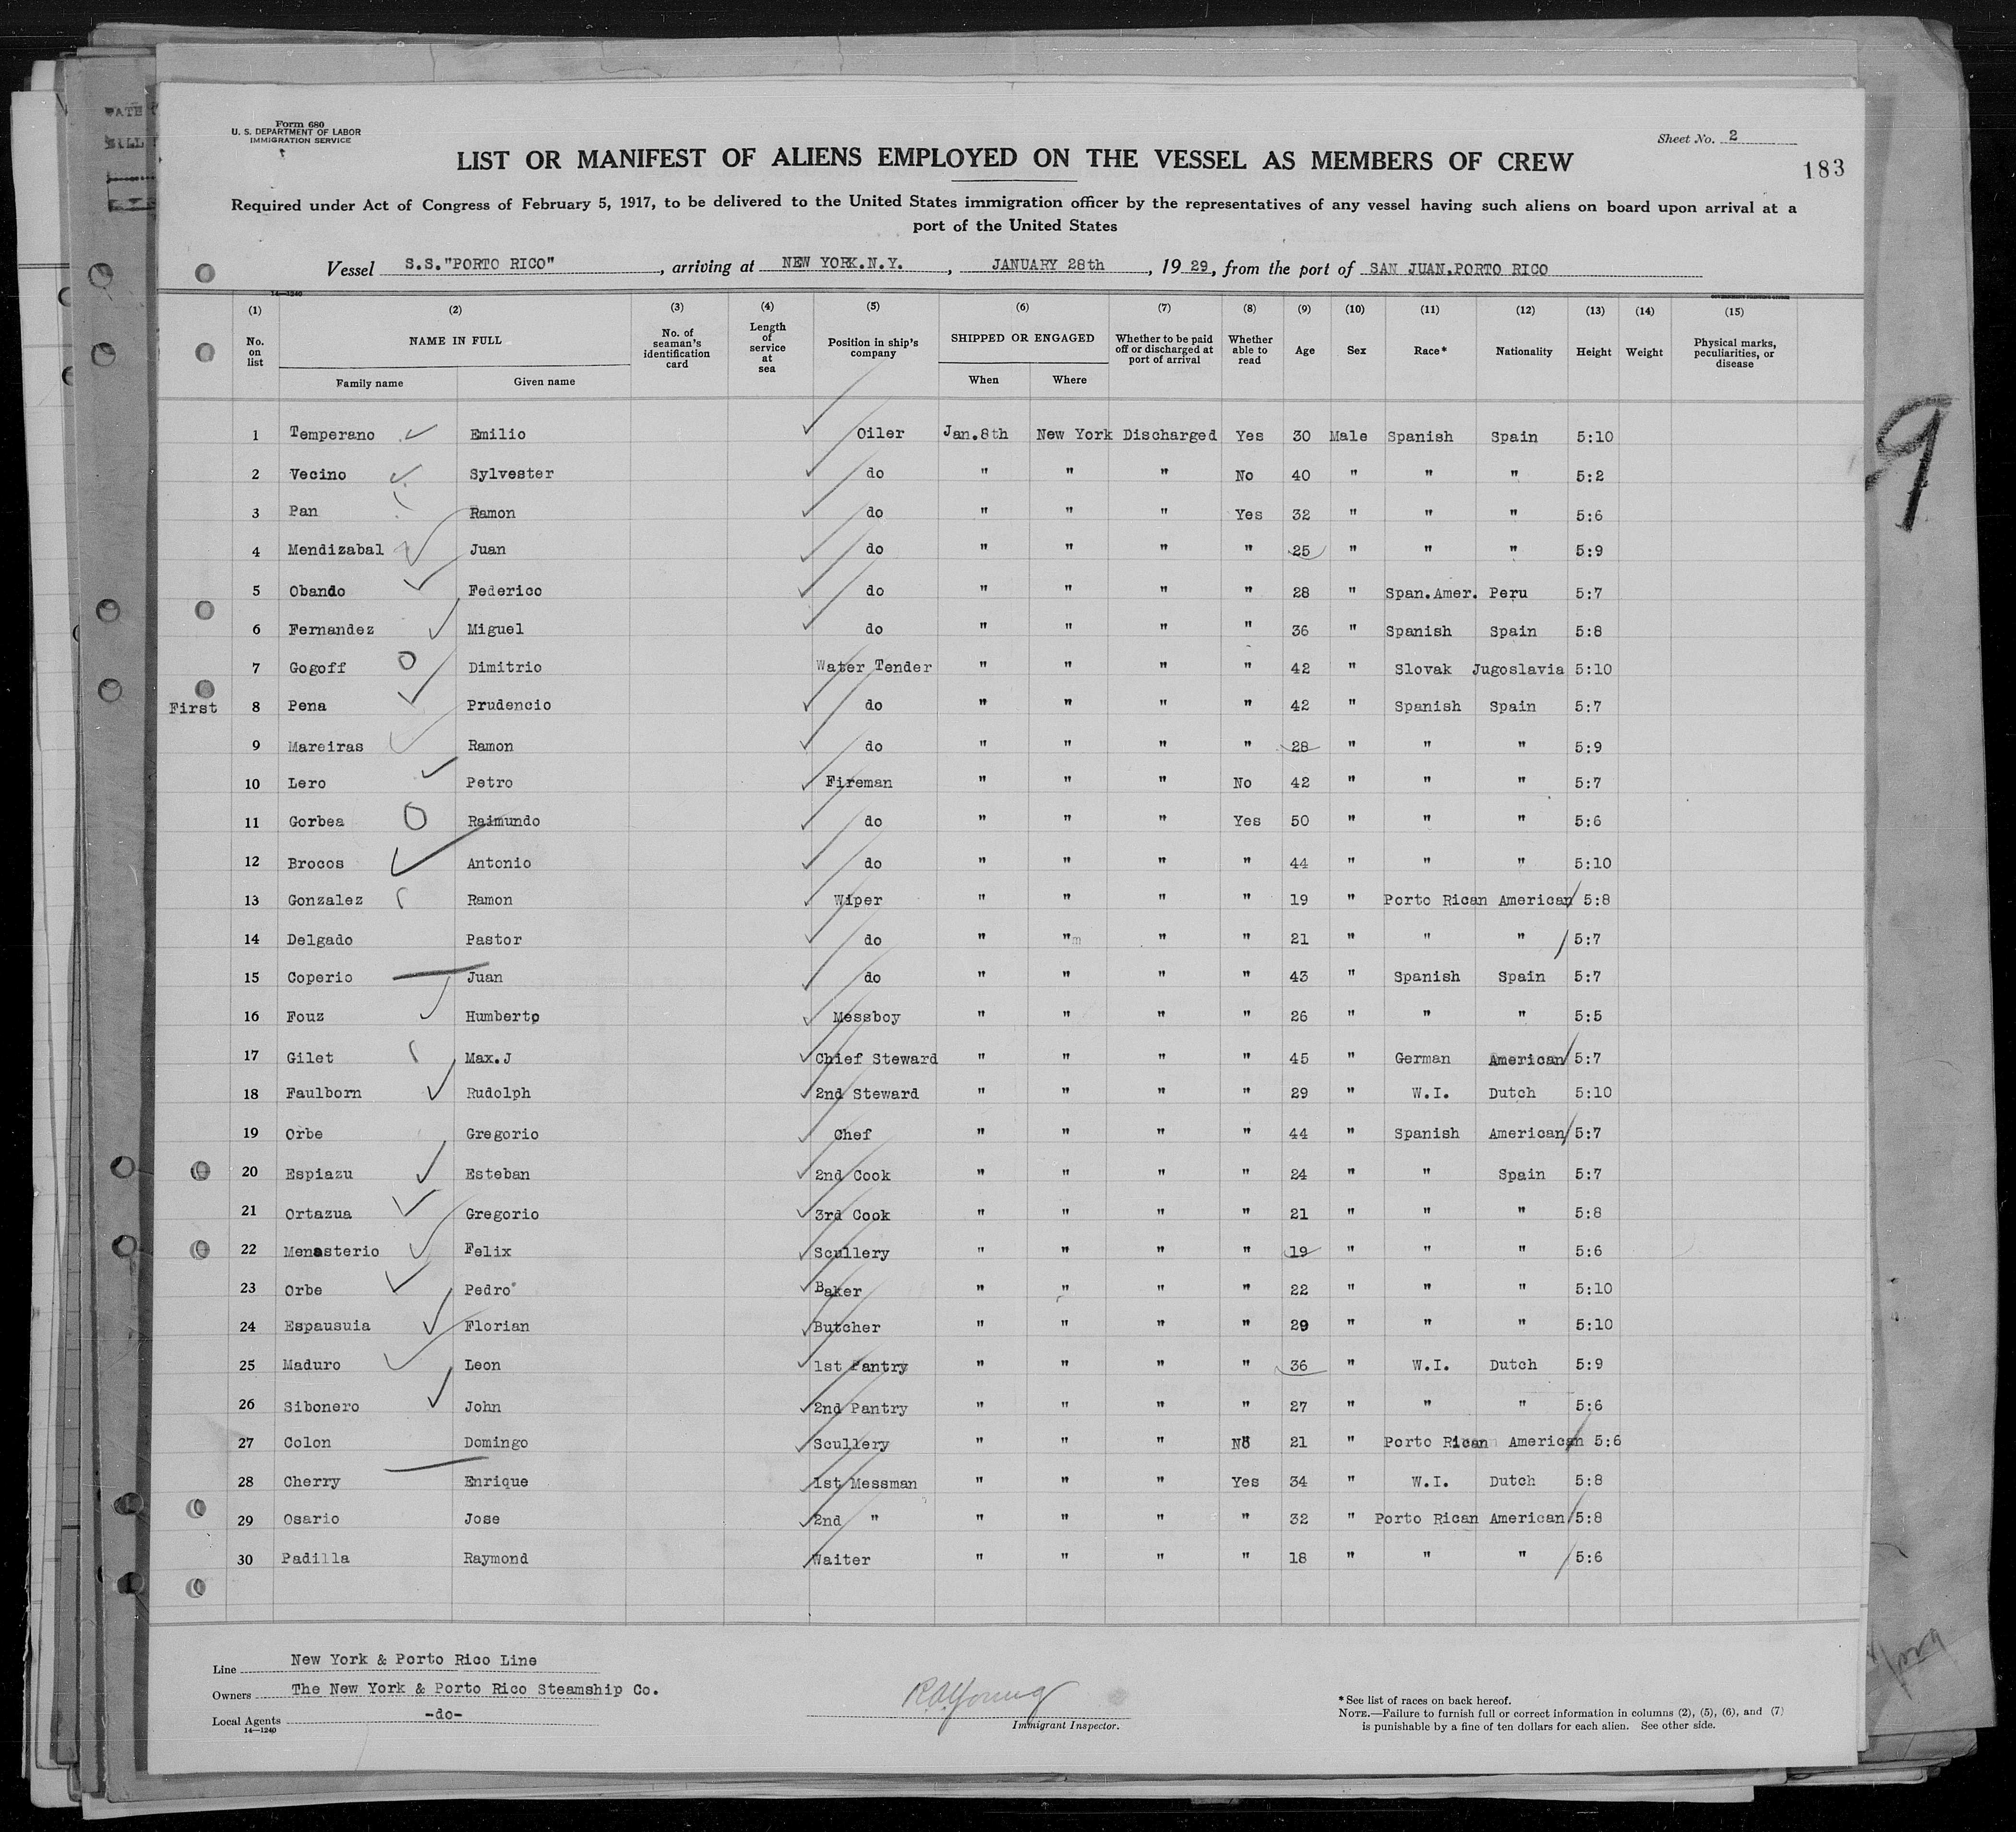 Form 680
U. S. DEPARTMENT OF LABOR
IMMIGRATION SERVICE
Sheet No. 2
183
LIST OR MANIFEST OF ALIENS EMPLOYED ON THE VESSEL AS MEMBERS OF CREW
Required under Act of Congress of February 5, 1917, to be delivered to the United States immigration officer by the representatives of any vessel having such aliens on board upon arrival at a
port of the United States
Vessel S.S."PORTO RICO", arriving at NEW YORK.N.Y., JANUARY 28th, 1929, from the port of SAN JUAN.PORTO RICO
14—1240
(1) (2) (3) (4) (5) (6) (7) (8) (9) (10) (11) (12) (13) (14) (15)
No. on list NAME IN FULL Family name Given name No. of seaman's identification card Length of service at sea Position in ship's company SHIPPED OR ENGAGED When Where Whether to be paid off or discharged at port of arrival Whether able to read Age Sex Race* Nationality Height Weight Physical marks, peculiarities, or disease
1 Temperano Emilio Oiler Jan.8th New York Discharged Yes 30 Male Spanish Spain 5:10
2 Vecino Sylvester do " " " No 40 " " " 5:2
3 Pan Ramon do " " " Yes 32 " " " 5:6
4 Mendizabal Juan do " " " " 25 " " " 5:9
5 Obando Federico do " " " " 28 " Span.Amer. Peru 5:7
6 Fernandez Miguel do " " " " 36 " Spanish Spain 5:8
7 Gogoff Dimitrio Water Tender " " " " 42 " Slovak Jugoslavia 5:10
First 8 Pena Prudencio do " " " " 42 " Spanish Spain 5:7
9 Mareiras Ramon do " " " " 28 " " " 5:9
10 Lero Petro Fireman " " " No 42 " " " 5:7
11 Gorbea Raimundo do " " " Yes 50 " " " 5:6
12 Brocos Antonio do " " " " 44 " " " 5:10
13 Gonzalez Ramon Wiper " " " " 19 " Porto Rican American 5:8
14 Delgado Pastor do " " " " 21 " " " 5:7
15 Coperio Juan do " " " " 43 " Spanish Spain 5:7
16 Fouz Humberto Messboy " " " " 26 " " " 5:5
17 Gilet Max.J Chief Steward " " " " 45 " German American 5:7
18 Faulborn Rudolph 2nd Steward " " " " 29 " W.I. Dutch 5:10
19 Orbe Gregorio Chef " " " " 44 " Spanish American 5:7
20 Espiazu Esteban 2nd Cook " " " " 24 " " Spain 5:7
21 Ortazua Gregorio 3rd Cook " " " " 21 " " " 5:8
22 Menasterio Felix Scullery " " " " 19 " " " 5:6
23 Orbe Pedro Baker " " " " 22 " " " 5:10
24 Espausuia Florian Butcher " " " " 29 " " " 5:10
25 Maduro Leon 1st Pantry " " " " 36 " W.I. Dutch 5:9
26 Sibonero John 2nd Pantry " " " " 27 " " " 5:6
27 Colon Domingo Scullery " " " No 21 " Porto Rican American 5:6
28 Cherry Enrique 1st Messman " " " Yes 34 " W.I. Dutch 5:8
29 Osario Jose 2nd " " " " " 32 " Porto Rican American 5:8
30 Padilla Raymond Waiter " " " " 18 " " " 5:6
9
Line New York & Porto Rico Line
Owners The New York & Porto Rico Steamship Co.
Local Agents -do-
14—1240
R.A. Young
Immigrant Inspector.
*See list of races on back hereof.
NOTE.—Failure to furnish full or correct information in columns (2), (5), (6), and (7)
is punishable by a fine of ten dollars for each alien. See other side.